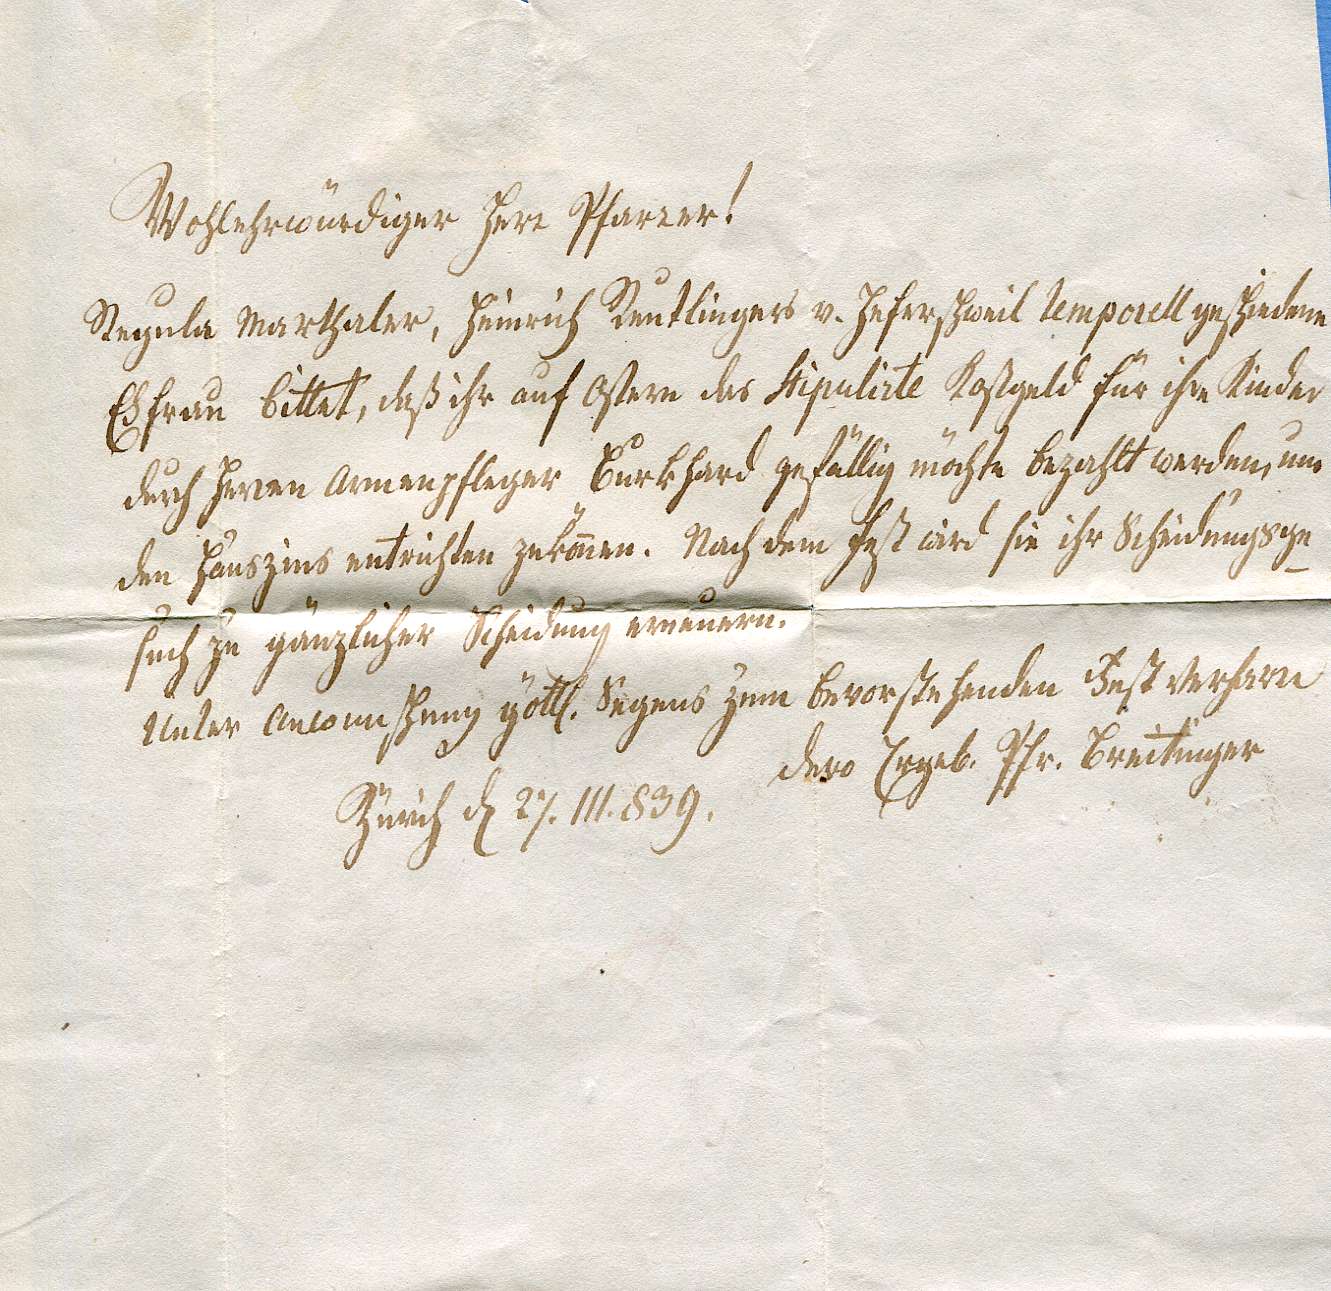 Wohlehrwürdiger Herr Pfarrer!
Regula Marthaler, Heinrich Reutlingers v. Heferschweil temporell geschiedene
Ehfrau bittet, daß ihr auf Ostern das stipulirte Kostgeld für ihre Kinder
durch Herren Armenpfleger Burkhard gefällig möchte bezahlt werden, um
den Hauszins entrichten zukönnen. Nach dem Fest wird sie ihr Scheidungsge-
such zu gänzlicher Scheidung erneuern.
Unter Anwünschung göttl. Segens zum bevorstehenden Fest verharre
dero Ergeb. Pfr. Breitinger
Zürich d 27. III. 839.